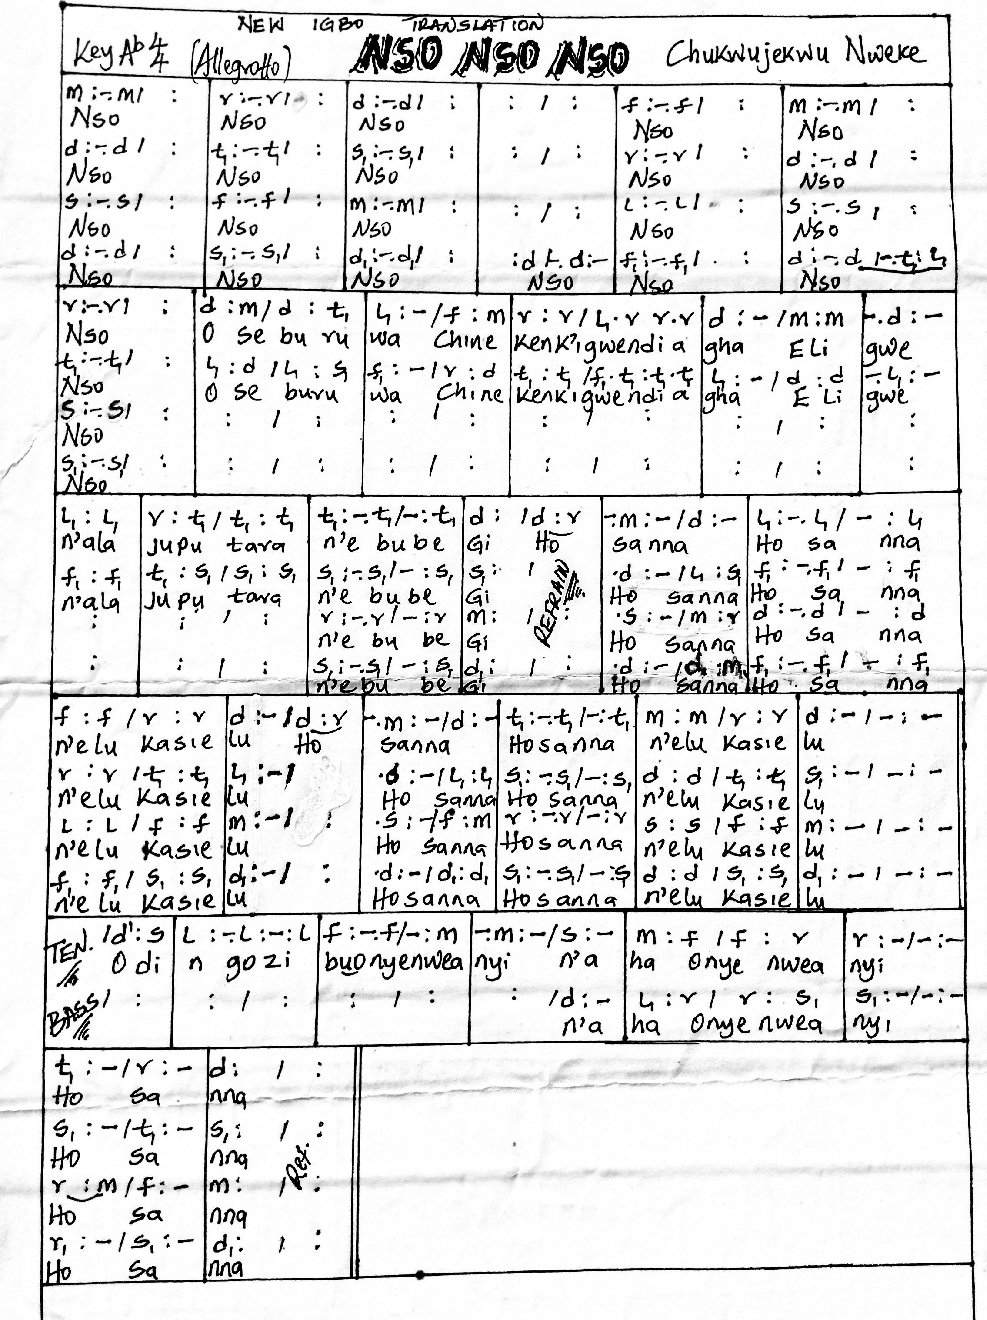 NEW IGBO TRANSLATION
Key Ab 4/4 (Allegretto) NSO NSO NSO Chukwujekwu Nweke
m :-.m / : r :-.r / : d :-.d / : : / : f :-.f / : m :-.m / :
Nso Nso Nso Nso Nso
d :-.d / : t₁ :-.t₁ / : s₁ :-.s₁ / : : / : r :-.r / : d :-.d / :
Nso Nso Nso Nso Nso
s :-.s / : f :-.f / : m :-.m / : : / : L :-.L / : s :-.s / :
Nso Nso Nso Nso Nso
d :-.d / : s₁ :-.s₁ / : d₁ :-.d₁ / : : d /-. d :- f₁ :-.f₁ / : d :-.d /-.t₁ : l₁
Nso Nso Nso Nso Nso Nso
r :-.r / : d : m / d : t₁ l₁ : - / f : m r : r / l₁.r r.r d : - / m : m -.d : -
Nso O se bu ru wa Chine Kenk'igwendi a gha E Li gwe
t₁ :-.t₁ / : l₁ : d / l₁ : s₁ f₁ : - / r : d t₁ : t₁ / f₁.t₁ : t₁.t₁ l₁ : - / d : d -.l₁ : -
Nso O se buru wa Chine Kenkigwendi a gha E Li gwe
s :-.s / : : / : : / : : / : : / : :
Nso
s₁ :-.s₁ / : : / : : / : : / : : / : :
Nso
l₁ : l₁ r : t₁ / t₁ : t₁ t₁ :-.t₁ / - : t₁ d : / d : r -.m : - / d : - l₁ :-.l₁ / - : l₁
n'ala Jupu tara n'e bu be Gi Ho sanna Ho sa nna
f₁ : f₁ t₁ : s₁ / s₁ : s₁ s₁ :-.s₁ / - : s₁ s₁ : / .d : - / l₁ : s₁ f₁ :-.f₁ / - : f₁
n'ala Jupu tara n'e bu be Gi REFRAIN Ho sanna Ho sa nna
: : / : r :-.r / - : r m : / : .s : - / m : r d :-.d / - : d
n'e bu be Gi Ho sanna Ho sa nna
: : / : s₁ :-.s₁ / - : s₁ d₁ : / : .d : - / d : m₁ f₁ :-.f₁ / - : f₁
n'e bu be Gi Ho sanna Ho sa nna
f : f / r : r d : - / d : r -.m : - / d : - t₁ :-.t₁ / - : t₁ m : m / r : r d : - / - : -
n'elu Kasie lu Ho sanna Hosanna n'elu Kasie lu
r : r / t₁ : t₁ l₁ : - / .d : - / l₁ : l₁ s₁ :-.s₁ / - : s₁ d : d / t₁ : t₁ s₁ : - / - : -
n'elu Kasie lu Ho sanna Ho sanna n'elu Kasie lu
L : L / f : f m : - / : .s : - / f : m r :-.r / - : r s : s / f : f m : - / - : -
n'elu Kasie lu Ho sanna Hosanna n'elu Kasie lu
f₁ : f₁ / s₁ : s₁ d₁ : - / : .d : - / d₁ : d₁ s₁ :-.s₁ / - : s₁ d : d / s₁ : s₁ d₁ : - / - : -
n'elu Kasie lu Hosanna Hosanna n'elu Kasie lu
TEN. / d' : s L :-.L :- : L f :-.f / - : m -.m : - / s : - m : f / f : r r : - / - : -
O di n gozi buonyenwea nyi n'a ha Onye nwea nyi
BASS / : : / : : / : : / d : - l₁ : r / r : s₁ s₁ : - / - : -
n'a ha Onye nwea nyi
t₁ : - / r : - d : / :
Ho sa nna
s₁ : - / t₁ : - s₁ : / :
Ho sa nna
r : m / f : - m : / : Ref.
Ho sa nna
r₁ : - / s₁ : - d₁ : / :
Ho sa nna